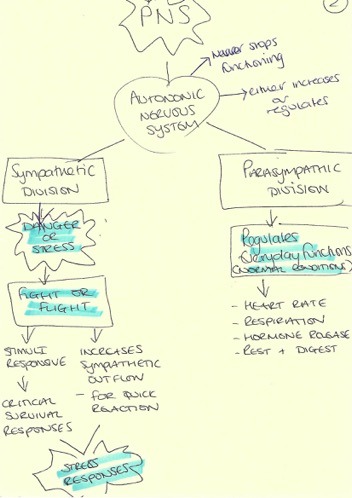 2
PNS
Never stops
functioning
AUTONOMIC
NERVOUS
SYSTEM
either increases
or
regulates
Sympathetic
DIVISION
PARASYMPATHIC
DIVISION
DANGER
OR
STRESS
Regulates
everyday functions
(NORMAL CONDITIONS)
FIGHT OR
FLIGHT
- HEART RATE
- RESPIRATION
- HORMONE RELEASE
- REST + DIGEST
STIMULI
RESPONSIVE
INCREASES
SYMPATHETIC
OUTFLOW
- FOR QUICK
REACTION
CRITICAL
SURVIVAL
RESPONSES
STRESS
RESPONSES